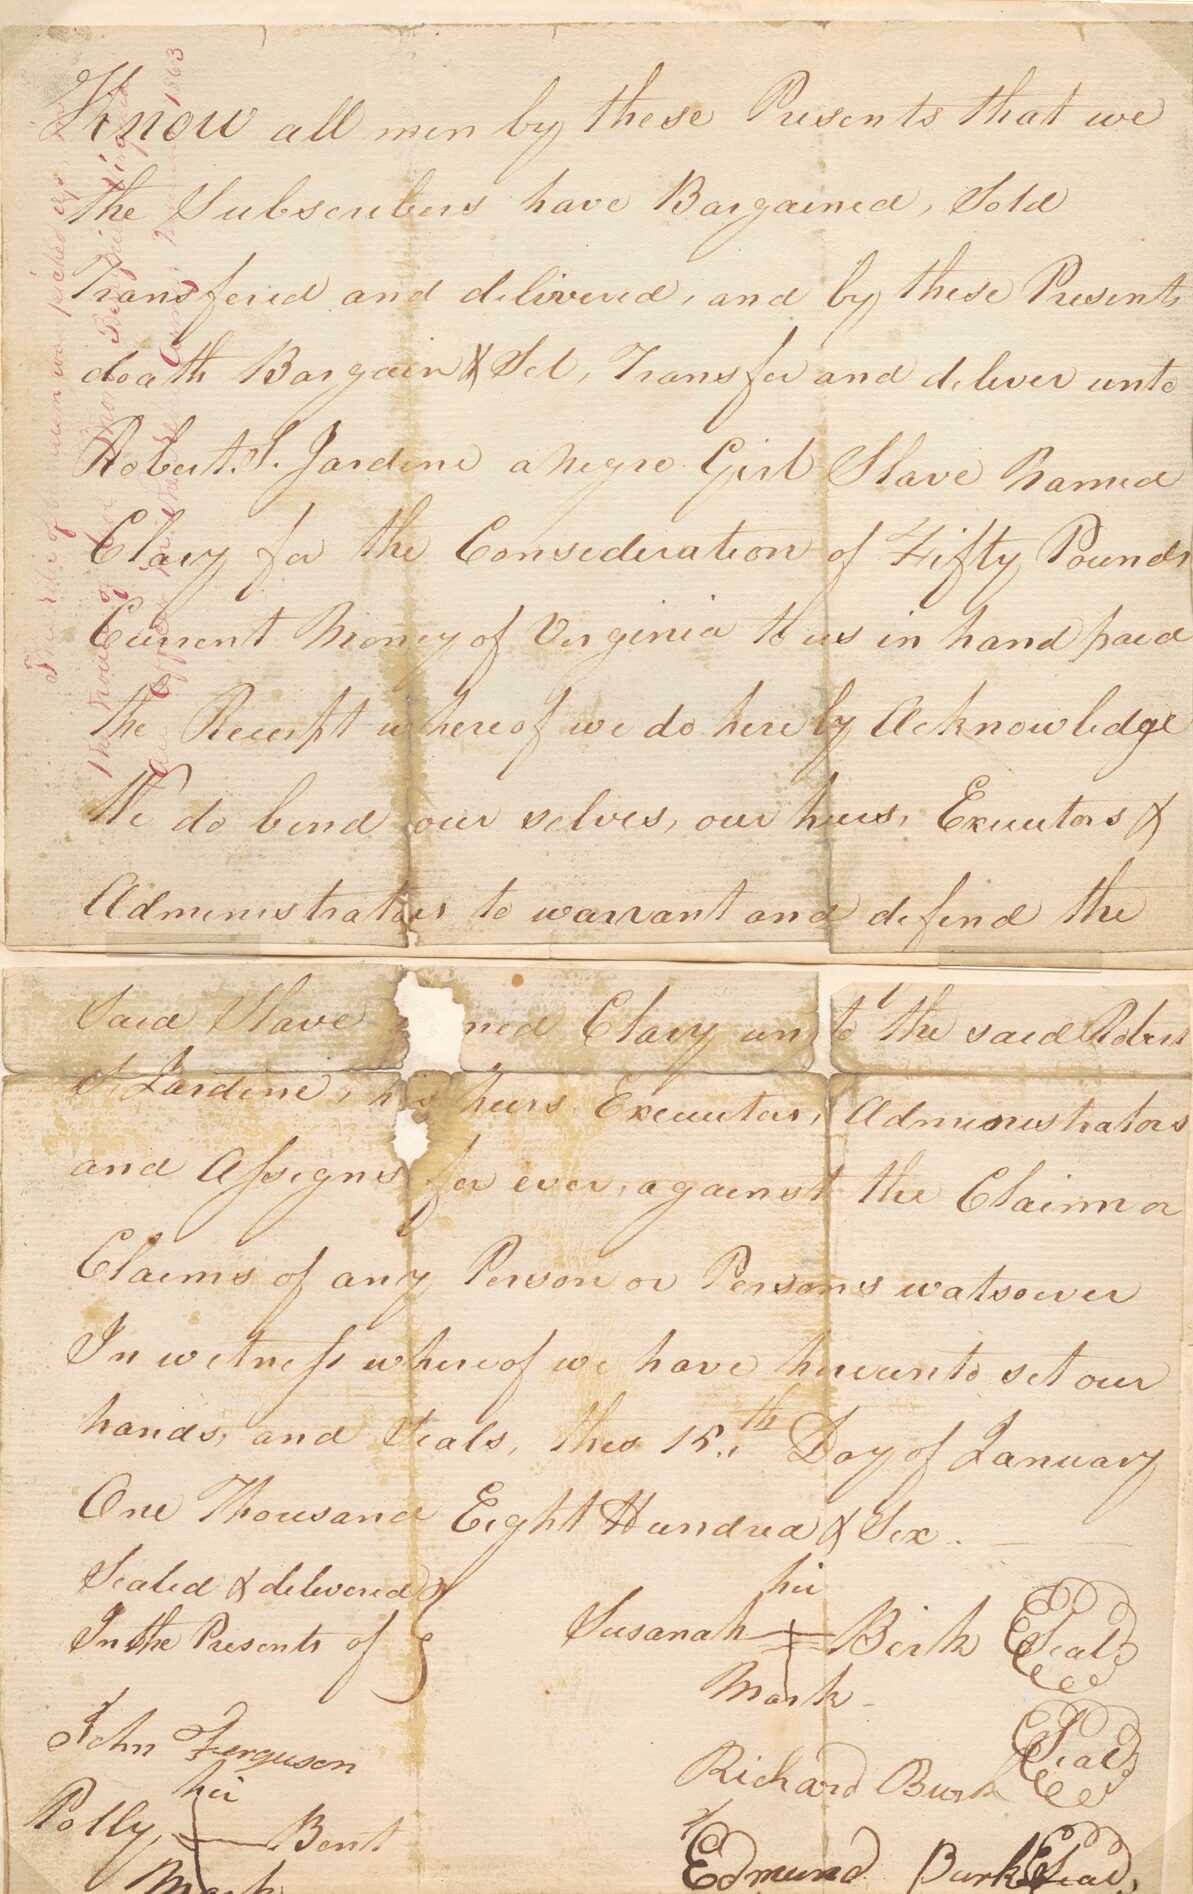 Know all men by these Presents that we
the Subscribers have Bargained, Sold
Transfered and delivered, and by these Presents
doath Bargain & Sel, Transfer and deliver unto
Robert. S. Jardine a Negro Girl Slave Named
Clary for the Consideration of Fifty Pounds
Current Money of Virginia to us in hand paid
the Receipt whereof we do hereby Acknowledge
We do bend our selves, our heirs, Executors &
Administrators to warrant and defend the
Said Slave ned Clary unto the said Robert
S. Jardine, his heirs Executors, Administrators
and Assigns for ever, against the Claim or
Claims of any Person or Persons watsoever
In witness whereof we have hereunto set our
hands, and Seals, this 15th Day of January
One Thousand Eight Hundred & Six.
Sealed & delivered
In the Presents of
her
Susanah Birk Seal
Mark
John Ferguson
Richard Burk Seal
her
Polly Bent
Mark
Edmund Burk Seal
This was picked up in
the house of
Court House 1863